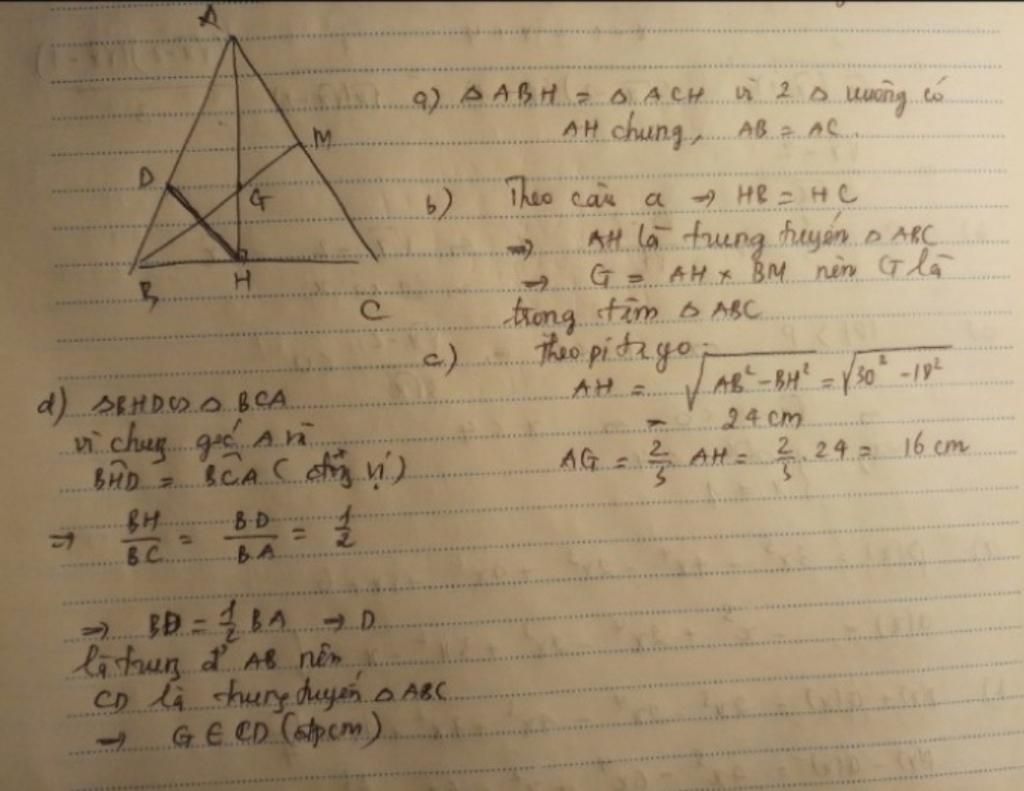 A
M
D
G
B
H
C
a) △ABH = △ACH vì 2 △ vuông có
AH chung, AB = AC.
b) Theo câu a → HB = HC
⇒ AH là trung tuyến △ABC
⇒ G = AH × BM nên G là
trọng tâm △ABC
c) Theo pitago:
AH = √(AB² - BH²) = √(30² - 18²)
= 24cm
AG = 2/3 AH = 2/3 . 24 = 16 cm
d) △BHD ∽ △BCA
vì chung góc A và
BĤD = BĈA (đồng vị)
⇒ BH/BC = BD/BA = 1/2
⇒ BD = 1/2 BA → D
là trung đ' AB nên
CD là trung tuyến △ABC
→ G ∈ CD (đpcm)